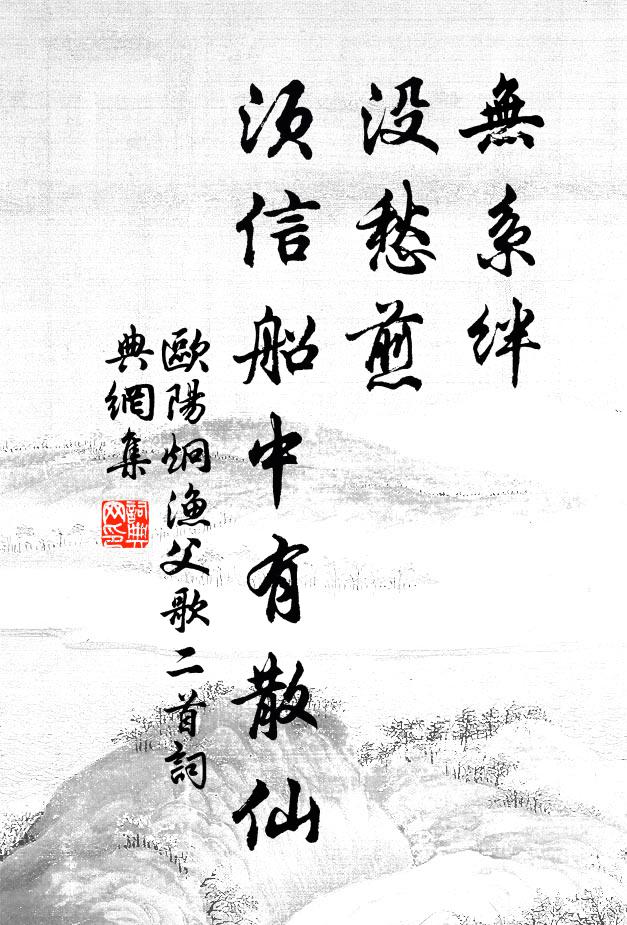 無系絆
没愁煎
須信船中有散仙
歐陽炯漁父歌二首詞
典網集
詞典网印